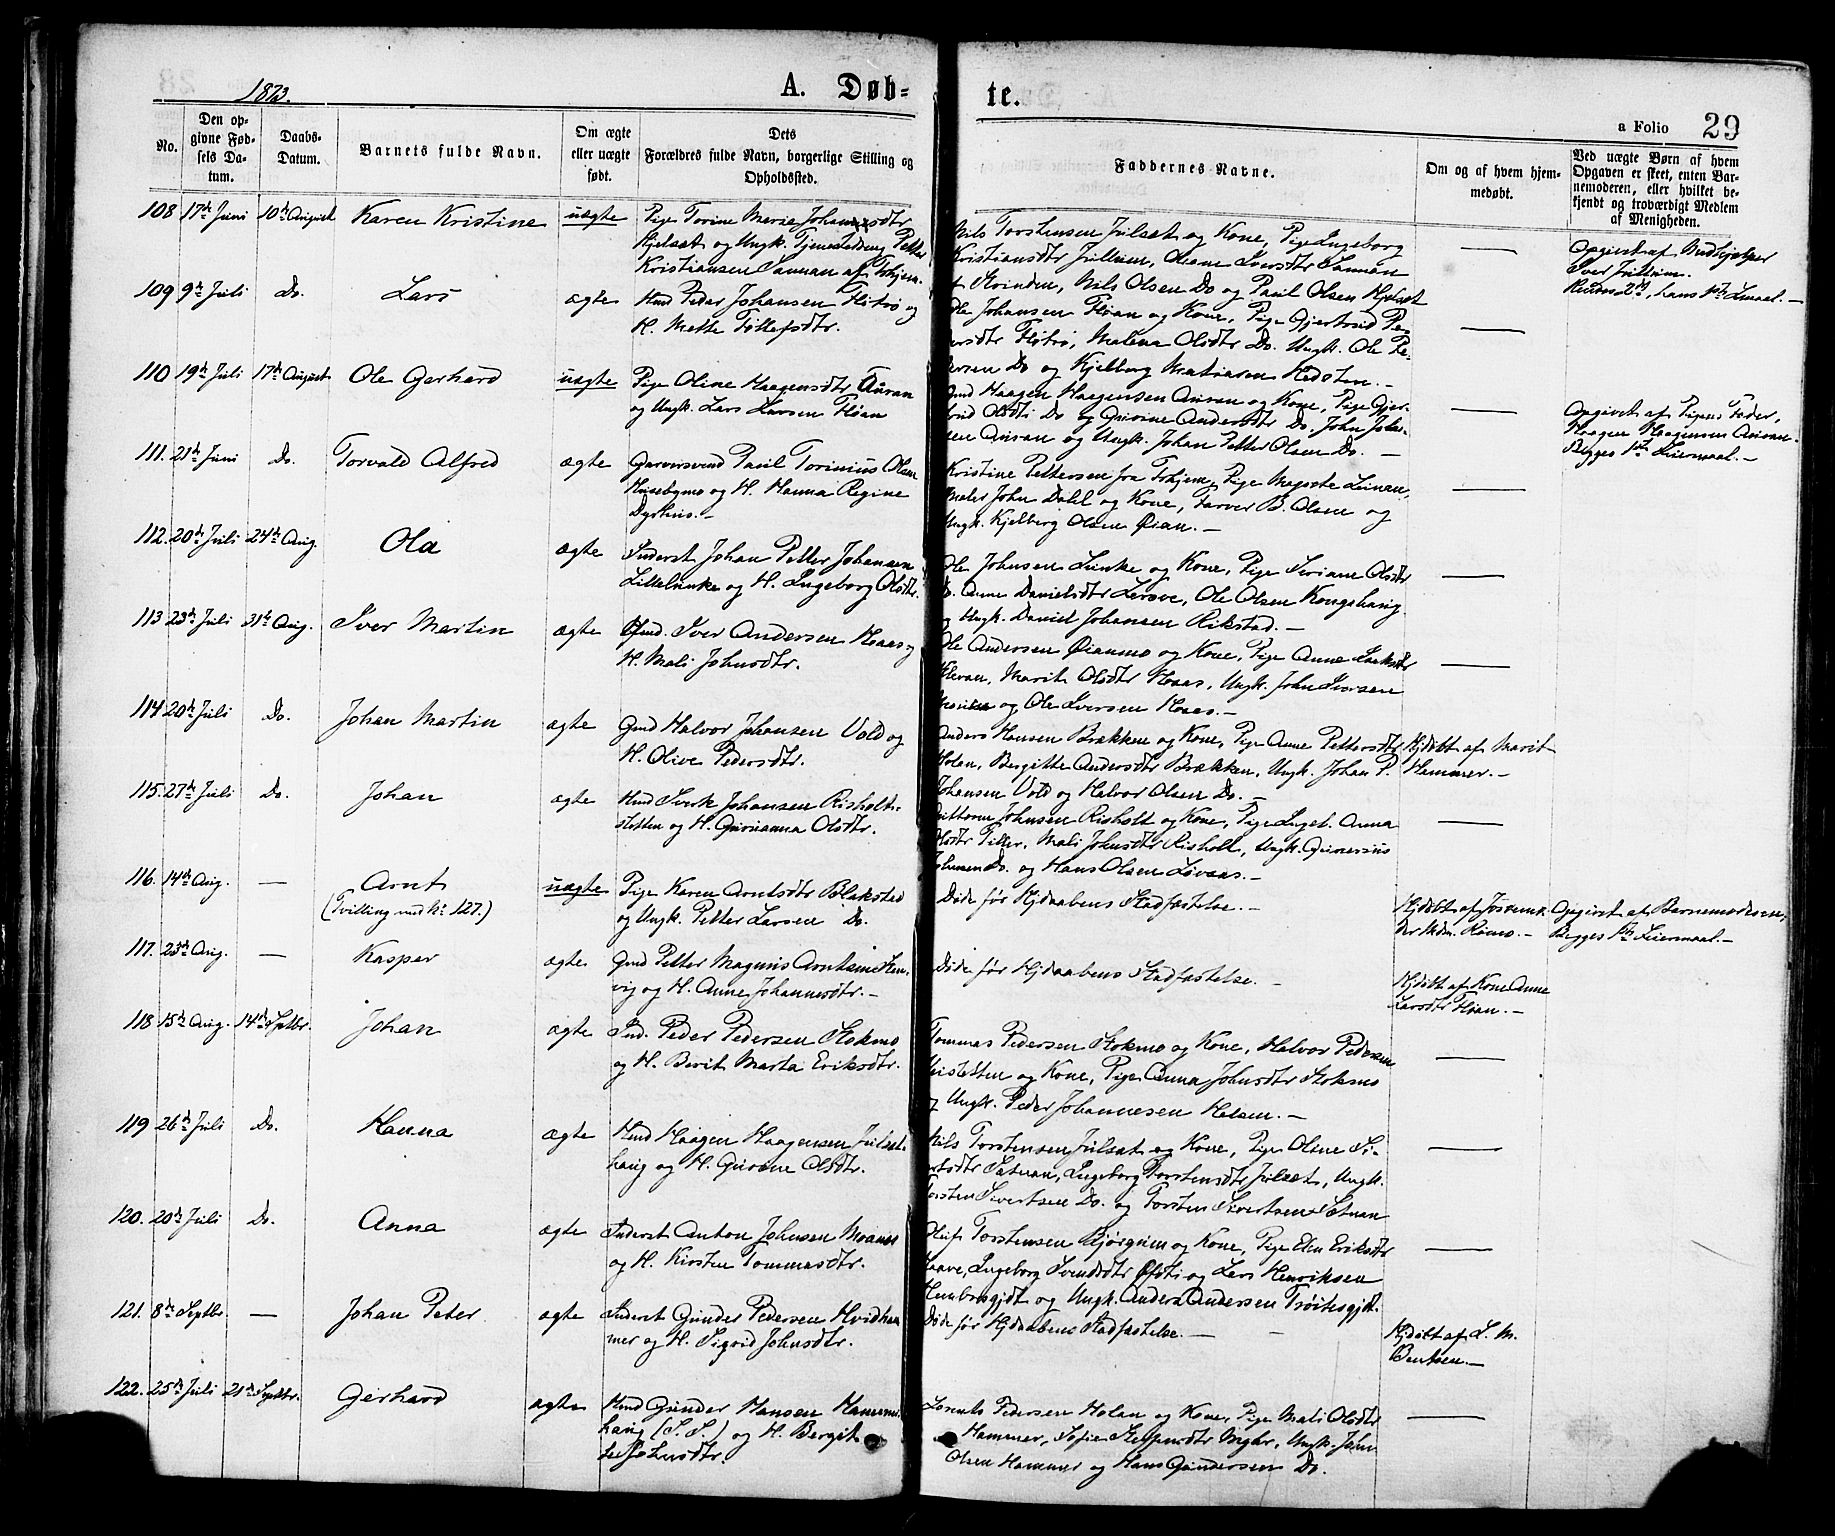 1873.
A. Døb-
te.
a Folio 29
No.
Den op-
givne Fød-
sels Da-
tum.
Daabs-
Datum.
Barnets fulde Navn.
Om ægte
eller uægte
født.
Dets
Forældres fulde Navn, borgerlige Stilling og
Opholdssted.
Faddernes Navne.
Om og af hvem hjem-
medøbt.
Ved uægte Børn af hvem
Opgaven er skeet, enten Bar-
nemoderen, eller hvilket be-
kjendt og troværdigt Medlem
af Menigheden.
108 17de Juni 10de August Karen Kristine uægte
Pige Torine Maria Johansdtr
Hjelset og Ungk. Petter
Kristiansen
Nils Torstensen Julset og Kone, Pige Ingeborg
Kristiansdtr Julium, Olsine Iversdtr
Nils Olsen Do og Paul Olsen Hjelset
Opgivet af Medhjelper
Iver Julium.
109 9de Juli Do. Lars ægte
Hmd Peder Johansen Fløtrø og
H. Mette
Ole Johansen Fløan og Kone, Pige Gjertrud Pe-
dersdtr Fløtrø, Malena Olsdtr Do. Ungk. Ole Pe-
dersen Do og Kjelberg
110 19de Juli 17de August Ole Gerhard uægte
Pige Oline Haagensdtr Auran
og Ungk. Lars Larsen Fløan
Gmd Haagen Haagensen Auran og Kone, Pige Gjer-
trud Olsdtr Do og Guruine Andersdtr Do. John John-
sen Auran og Ungk. Johan Petter Olsen Do. –
Opgivet af Pigens Fader,
Haagen Haagensen Auran.
Begges 1ste Leiermaal. –
111. 21de Juni Do. Torvald Alfred ægte
Garversvend Paul Torinius Olsen
Husebymo og H. Hanna Regine
Dyrhus. –
Kristine Pettersen fra Thjem, Pige Magrete
Maler John Dahl og Kone, Farver B. Olsen og
Ungk. Kjelberg Olsen Øian. –
112. 20de Juli 24de Aug. Ola ægte
Inderst Johan Petter Johansen
Littelunke og H. Ingeborg Olsdtr.
Ole Johnsen Lunke og Kone, Pige Seriane Olsdtr
Do. Anne Danielsdtr Ole Olsen Kongshaug
og Ungk. Daniel Johansen Rikstad. –
113 23de Juli 21de Aug. Iver Martin ægte
Gmd. Iver Andersen Haas og
H. Mali Johnsdtr.
Ole Andersen Øianmo og Kone, Pige Anne
Klevan, Marit Olsdtr Haas, Ungk. John Iversen
og Ole Iversen Haas. –
114. 20de Juli Do. Johan Martin ægte
Gmd Halvor Johansen Vold og
H. Olive Pedersdtr.
Anders Hansen Brækken og Kone, Pige Anne Pettersdtr
Holan, Bergitte Andersdtr Brækken, Ungk. Johan P.
Johansen Vold og Halvor Olsen Do. –
Hjdøbt af Marit
Hammer. –
115. 27de Juli Do. Johan ægte
Hmd Sivert Johansen Risholt-
sletten og H. Gurianna Olsdtr.
Guttorm Johnsen Risholt og Kone, Pige Ingeb. Anna
Olsdtr Tiller, Mali Johnsdtr Risholt, Ungk. Gunerius
Johnsen Do. og Hans Olsen Løvaas. –
116. 14de Aug. – Arnt uægte
(Tvilling med No 127.)
Pige Karen Arntsdtr Blakstad
og Ungk. Petter Larsen Do.
Døde før Hjdaabens Stadfæstelse. –
Hjdøbt af
Opgivet af Barnemoderen,
Begges 1ste Leiermaal. –
117. 23de Aug. – Kasper ægte
Gmd Petter Magnus Arntsen
vig og H. Anne Johannsdtr. –
Døde før Hjdaabens Stadfæstelse. –
Hjdøbt af Kone Anne
Larsdtr Fløan. –
118 15de Aug. 14de Septbr. Johan ægte
Ind. Peder Pedersen Stokmo
og H. Berit Marta Eriksdtr.
Tommas Pedersen Stokmo og Kone, Halvor Pedersen
og Kone, Pige Anna Johnsdtr Stokmo
og Ungk. Peder Johannesen Halsen. –
119 26de Juli Do. Hanna ægte
Hmd Haagen Haagensen Julset-
haug og H. Gurine Olsdtr.
Nils Torstensen Julset og Kone, Pige Oline Si-
vertsdtr Sætnan, Ingeborg Torstensdtr Julset, Ungk.
Torsten Sivertsen Do. og Torsten Sivertsen Sætnan
120. 20de Juli Do. Anna ægte
Inderst Anton Johnsen
og H. Kirsten Tommasdtr.
Oluf Torstensen Bjørgum og Kone, Pige Elen Eriksdtr
Ingeborg Svendsdtr og Lars Henriksen
og Ungk. Anders Andersen
121. 8de Septbr. – Johan Peter ægte
Inderst Gunder Pedersen Hvidham-
mer og H. Sigrid Johnsdtr.
Døde før Hjdaabens Stadfæstelse. –
Hjdøbt af L. M.
Bentsen. –
122. 25de Juli 21de Septbr. Gerhard ægte
Hmd Gunder Hansen Hammer-
haug (S. S.) og H. Bergit-
te Johnsdtr.
Lorents Pedersen Holan og Kone, Pige Mali Olsdtr
Hammer, Sofie Ungk. John
Olsen Hammer og Hans Gundersen Do.